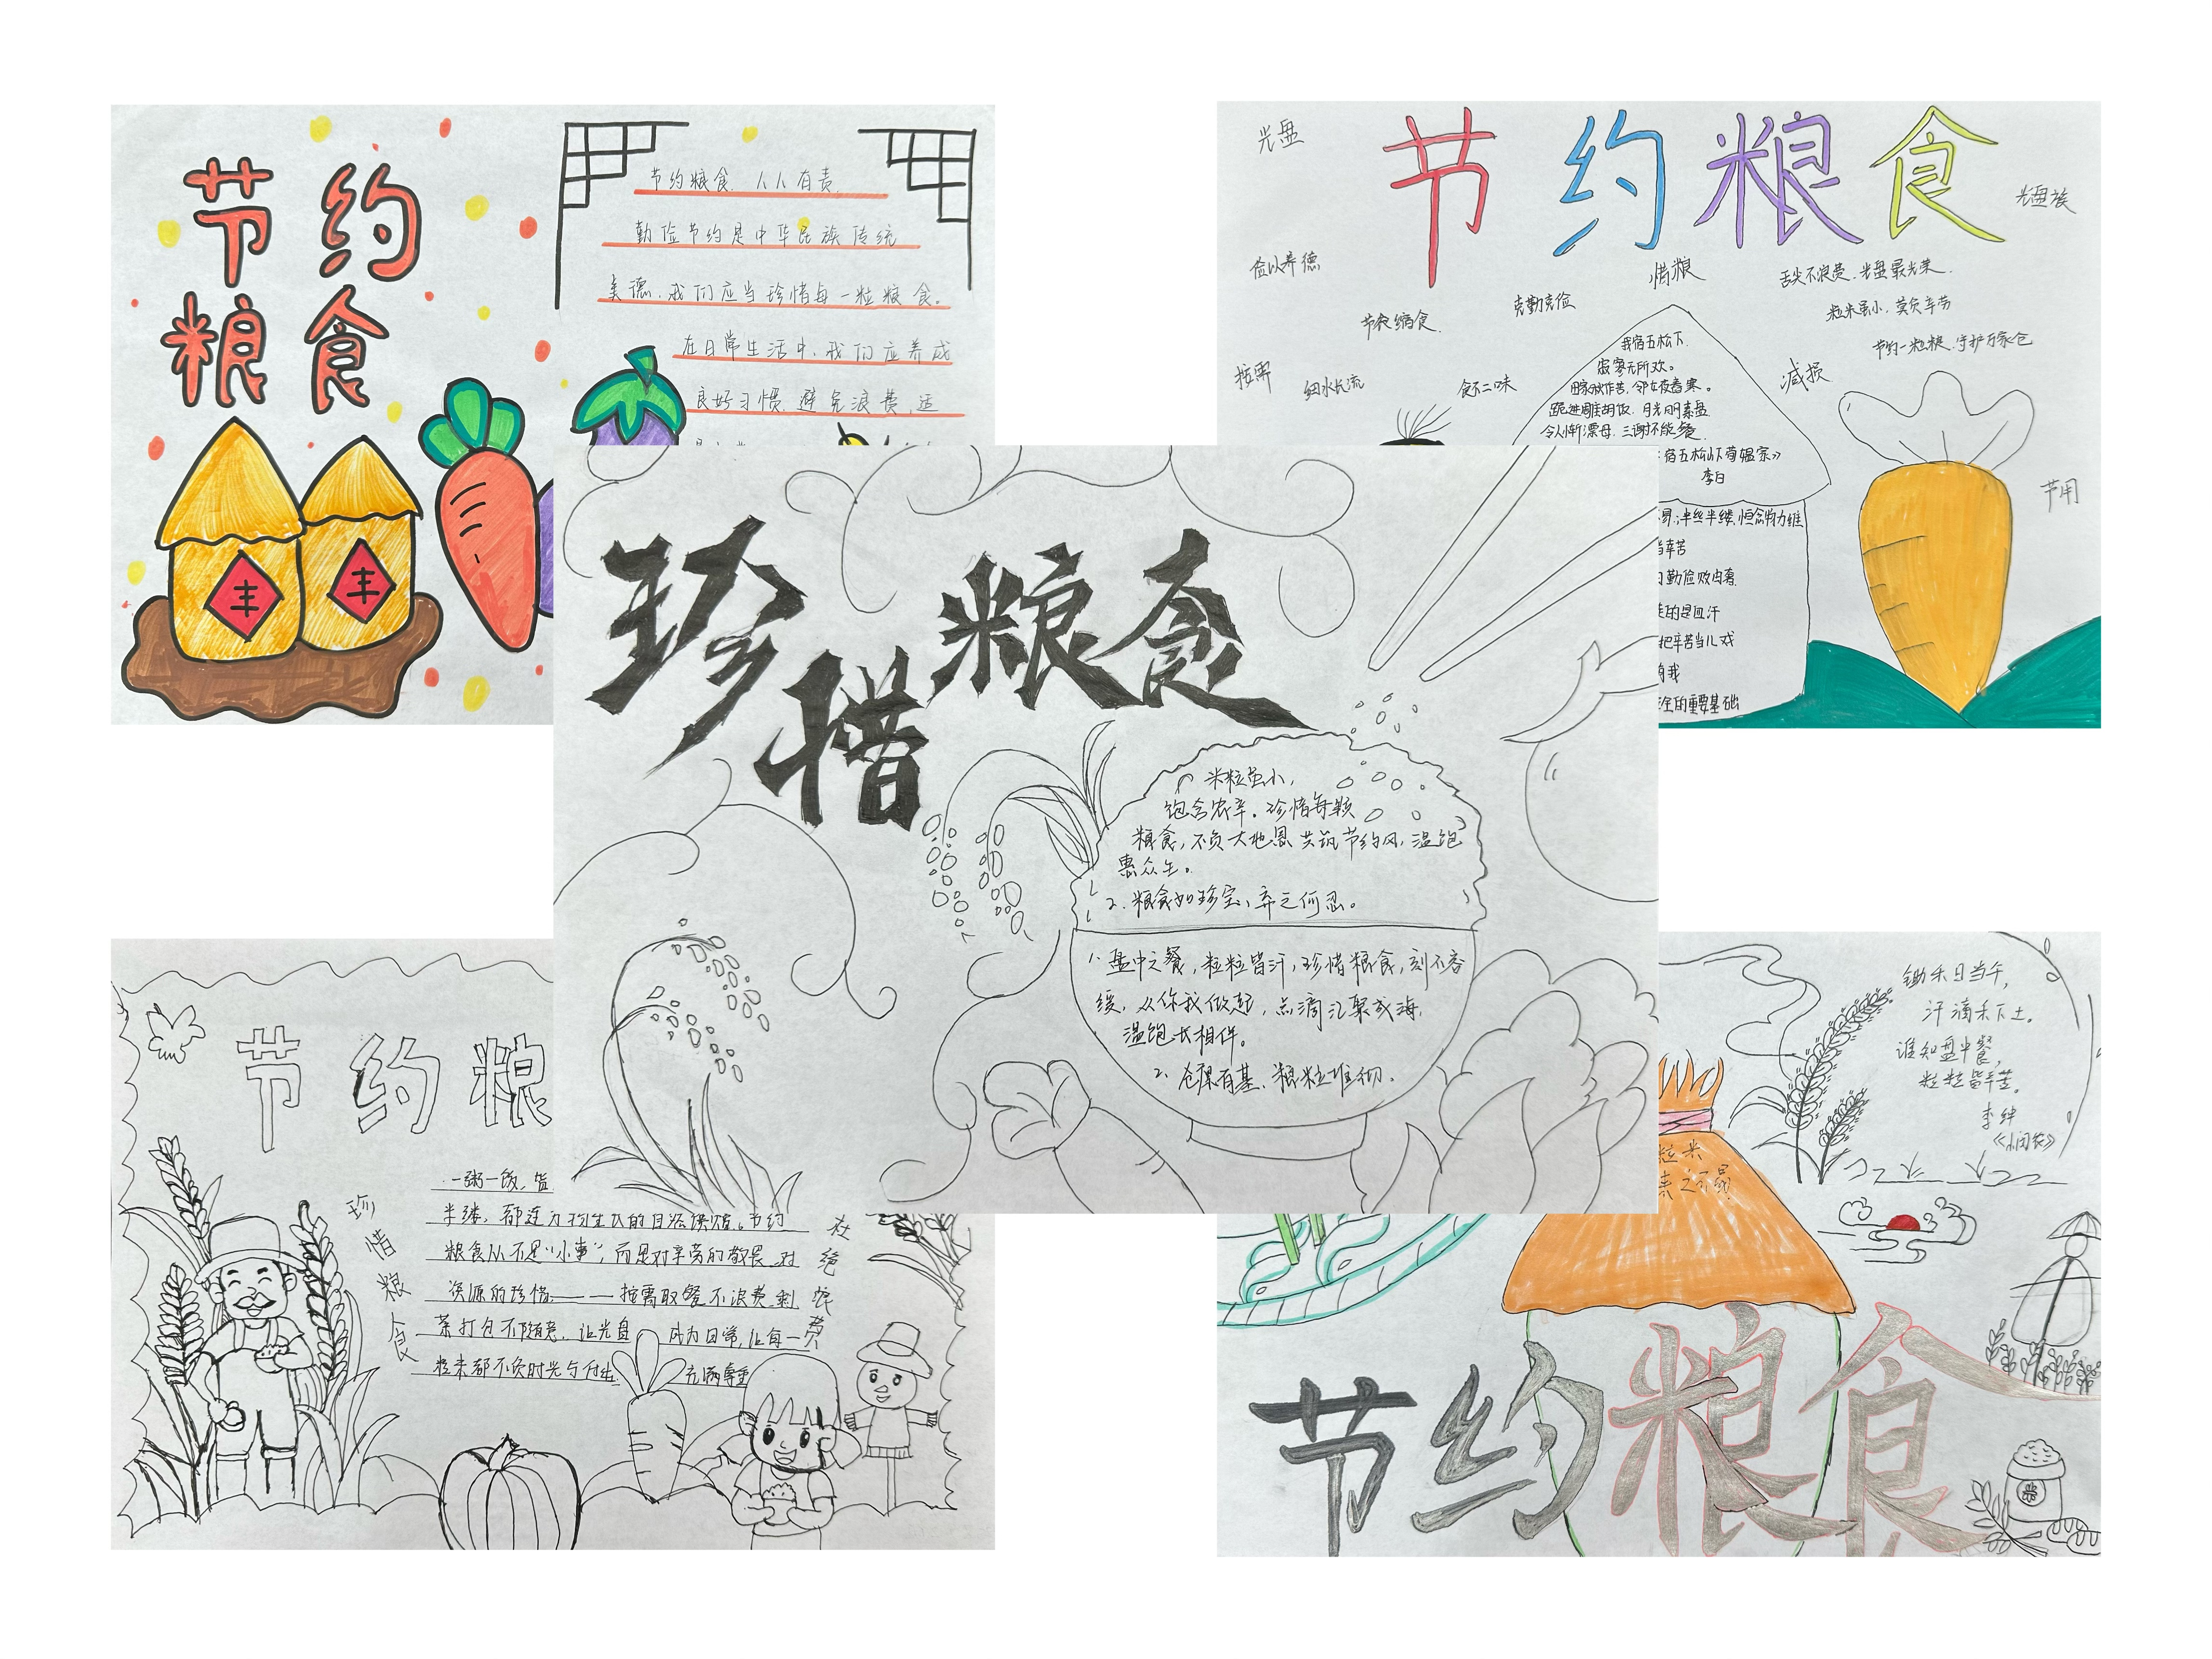 节约
粮食
丰
丰
节约粮食,人人有责.
勤俭节约是中华民族传统
美德,我们应当珍惜每一粒粮食。
在日常生活中,我们应养成
良好习惯,避免浪费,运
节约粮食
光盘
光盘族
俭以养德
惜粮
舌尖不浪费.光盘最光荣.
克勤克俭
粒米虽小,莫负辛劳
节衣缩食.
节约一粒粮.守护万家仓
按需
细水长流
食不二味
减损
节用
我宿五松下.
寂寥无所欢。
田家秋作苦,邻女夜舂寒。
跪进雕胡饭.月光明素盘
令人惭漂母.三谢不能餐.
宿五松山下荀媪家》
李白
易;半丝半缕,恒念物力维
当辛苦
勤俭败由奢
的是血汗
把辛苦当儿戏
有我
全的重要基础
珍惜粮食
米粒虽小,
饱含农辛.珍惜每颗
粮食,不负大地恩共筑节约风,温饱
惠众生。
2.粮食如珍宝,弃之何忍。
1.盘中之餐,粒粒皆汗,珍惜粮食,刻不容
缓,从你我做起,点滴汇聚成海,
温饱长相伴。
2.仓廪有基、粮粒堆彻.
节约粮
一粥一饭,
半缕,
节约
粮食从不是“小事”,而是对辛劳的敬畏.对
资源的珍惜——按需取餐不浪费,剩
菜打包不随意,让光盘 成为日常,让每一
粒米都不负时光与付出 充满尊重
珍惜粮食
杜绝浪费
锄禾日当午,
汗滴禾下土。
谁知盘中餐,
粒粒皆辛苦。
李绅
《悯农》
粒米
来之不易
节约粮食
米